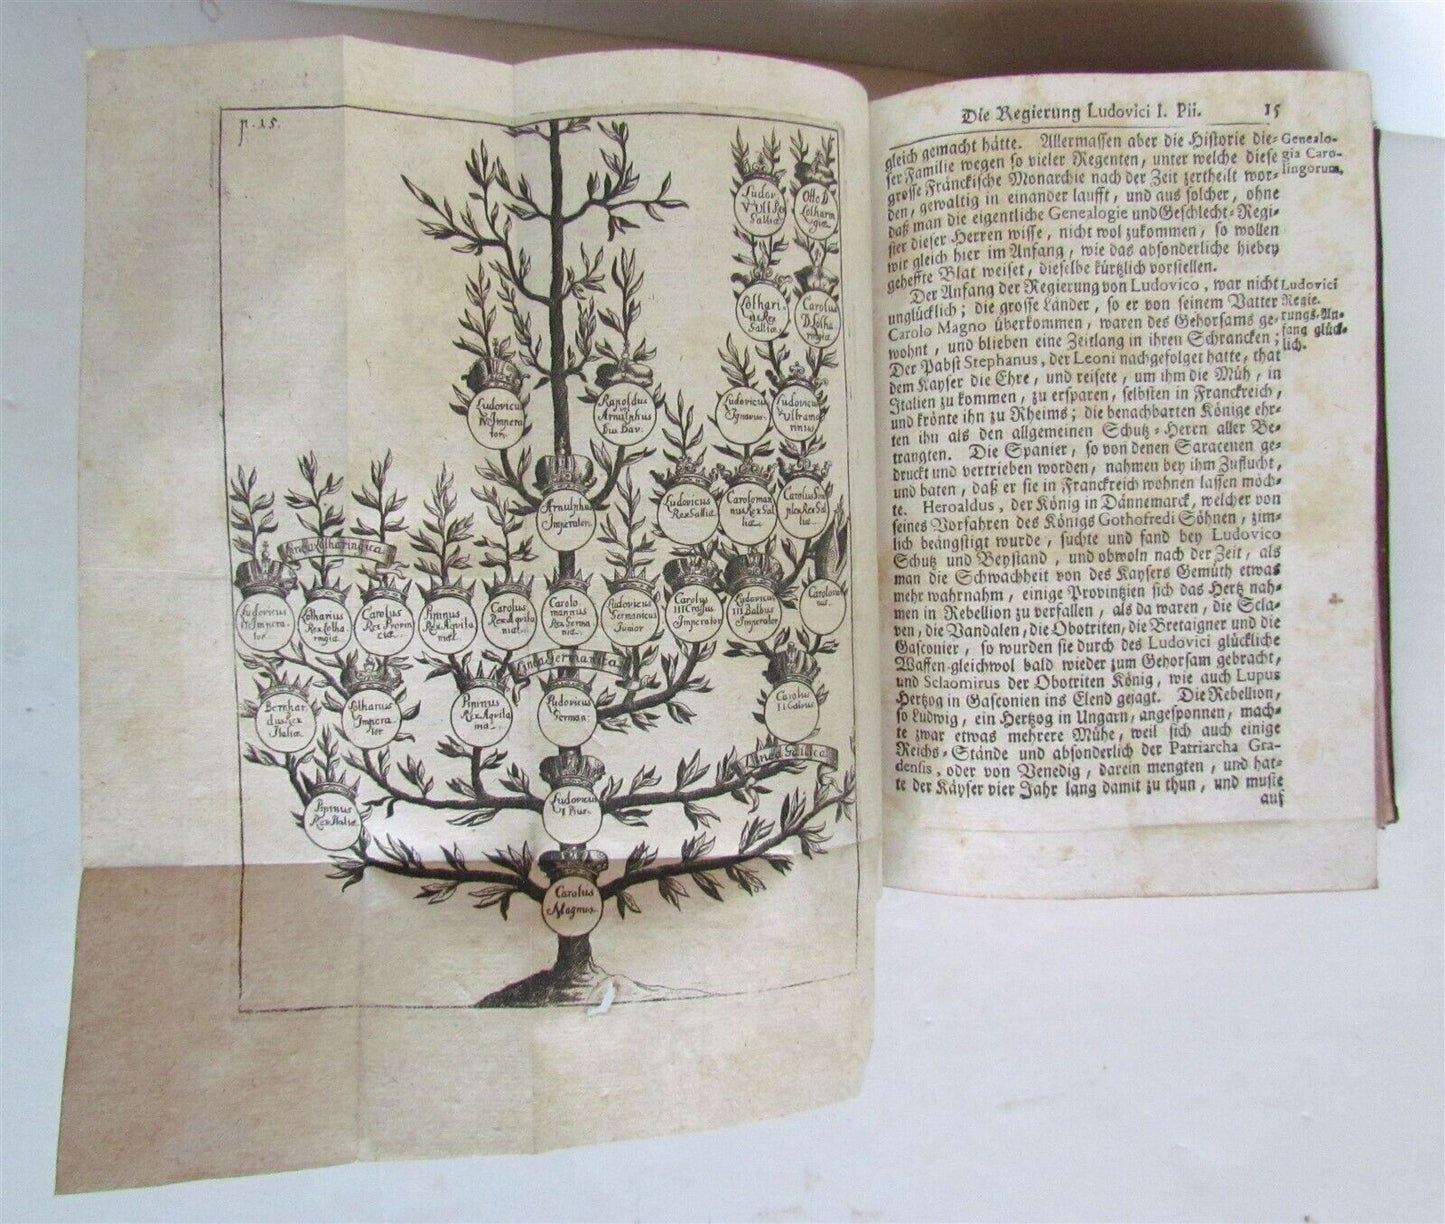 p. 15.
Ludov
VUlt Rex
Galliæ
Otto D
Lotharin
giæ
Lothari-
us Rex
Galliæ
Carolus
D. Lotha
ringiæ
Ludovicus
IV Impera
tor.
Rapoldus
vel
Arnulphus
Dux Bav:
Ludovicus
Ignavus.
Ludovicus
Ultrama
rinus
Arnulphus
Imperator
Ludovicus
Rex Galliæ
Caroloman
nus Rex Gal
liæ
Carolus Sim
plex Rex Gal
liæ
Linea Lotharingica
Ludovicus
II Impera-
tor
Lotharius
Rex Lotha
ringiæ
Carolus
Rex Provin
ciæ
Pipinus
Rex Aquita
niæ
Carolus
Rex Aquita
niæ
Carolo
mannus
Rex Germa
niæ
Ludovicus
Germanicus
Junior
Carolus
III Crassus
Imperator
Ludovicus
III Balbus
Imperator
Caroloman
nus.
Linea Germanica
Bernhar
dus Rex
Italiæ
Lotharius
Impera-
tor
Pipinus
Rex Aquita
niæ
Ludovicus
German:
Carolus
II Calvus
Linea Gallica
Pipinus
Rex Italiæ
Ludovicus
I Pius.
Carolus
Magnus
Die Regierung Ludovici I. Pii. 15
gleich gemacht hätte. Allermassen aber die Historie die-
ser Familie wegen so vieler Regenten, unter welche diese
grosse Fränckische Monarchie nach der Zeit zertheilt wor-
den, gewaltig in einander laufft, und aus solcher, ohne
daß man die eigentliche Genealogie und Geschlecht-Regi-
ster dieser Herren wisse, nicht wol zukommen, so wollen
wir gleich hier im Anfang, wie das absonderliche hiebey
geheffte Blat weiset, dieselbe kürtzlich vorstellen.
Genealo-
gia Caro-
lingorum.
Der Anfang der Regierung von Ludovico, war nicht
unglücklich; die grosse Länder, so er von seinem Vatter
Carolo Magno überkommen, waren des Gehorsams ge-
wohnt, und blieben eine Zeitlang in ihren Schrancken;
Der Pabst Stephanus, der Leoni nachgefolget hatte, that
dem Kayser die Ehre, und reisete, um ihm die Müh, in
Italien zu kommen, zu ersparen, selbsten in Franckreich,
und krönte ihn zu Rheims; die benachbarten Könige ehr-
ten ihn als den allgemeinen Schutz-Herrn aller Be-
trangten. Die Spanier, so von denen Saracenen ge-
druckt und vertrieben worden, nahmen bey ihm Zuflucht,
und baten, daß er sie in Franckreich wohnen lassen möch-
te. Heroaldus, der König in Dännemarck, welcher von
seines Vorfahren des Königs Gothofredi Söhnen, zim-
lich beängstigt wurde, suchte und fand bey Ludovico
Schutz und Beystand, und obwoln nach der Zeit, als
man die Schwachheit von des Kaysers Gemüth etwas
mehr wahrnahm, einige Provintzien sich das Hertz nah-
men in Rebellion zu verfallen, als da waren, die Scla-
ven, die Vandalen, die Obotriten, die Bretaigner und die
Gasconier, so wurden sie durch des Ludovici glückliche
Waffen gleichwol bald wieder zum Gehorsam gebracht,
und Sclaomirus der Obotriten König, wie auch Lupus
Hertzog in Gasconien ins Elend gejagt. Die Rebellion,
so Ludwig, ein Hertzog in Ungarn, angesponnen, mach-
te zwar etwas mehrere Mühe, weil sich auch einige
Reichs-Stände und absonderlich der Patriarcha Gra-
densis, oder von Venedig, darein mengten, und hat-
te der Käyser vier Jahr lang damit zu thun, und muste
auf
Ludovici
Regie-
rungs-An-
fang glück-
lich.